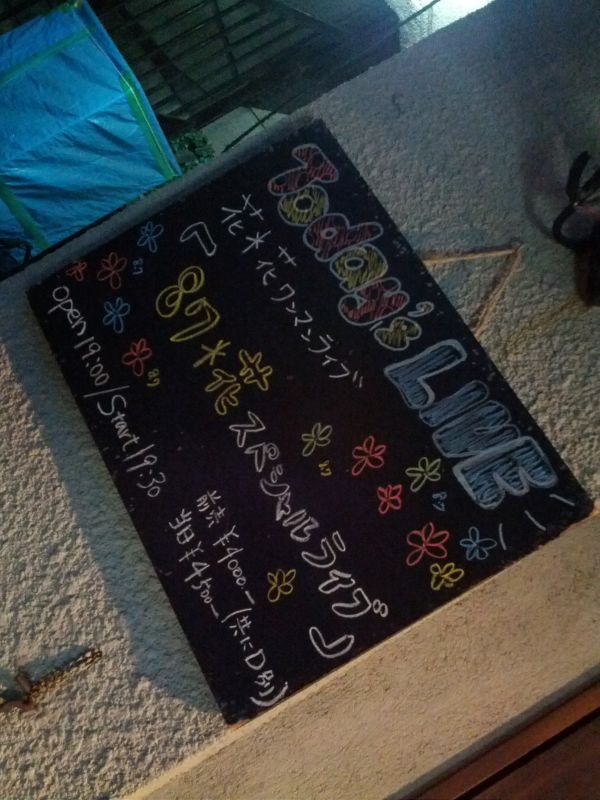 Today's LIVE
花*花ワンマンライブ
「87*花 スペシャルライブ」
前売 ¥4000-
当日 ¥4500- (共にD別)
open19:00/Start19:30